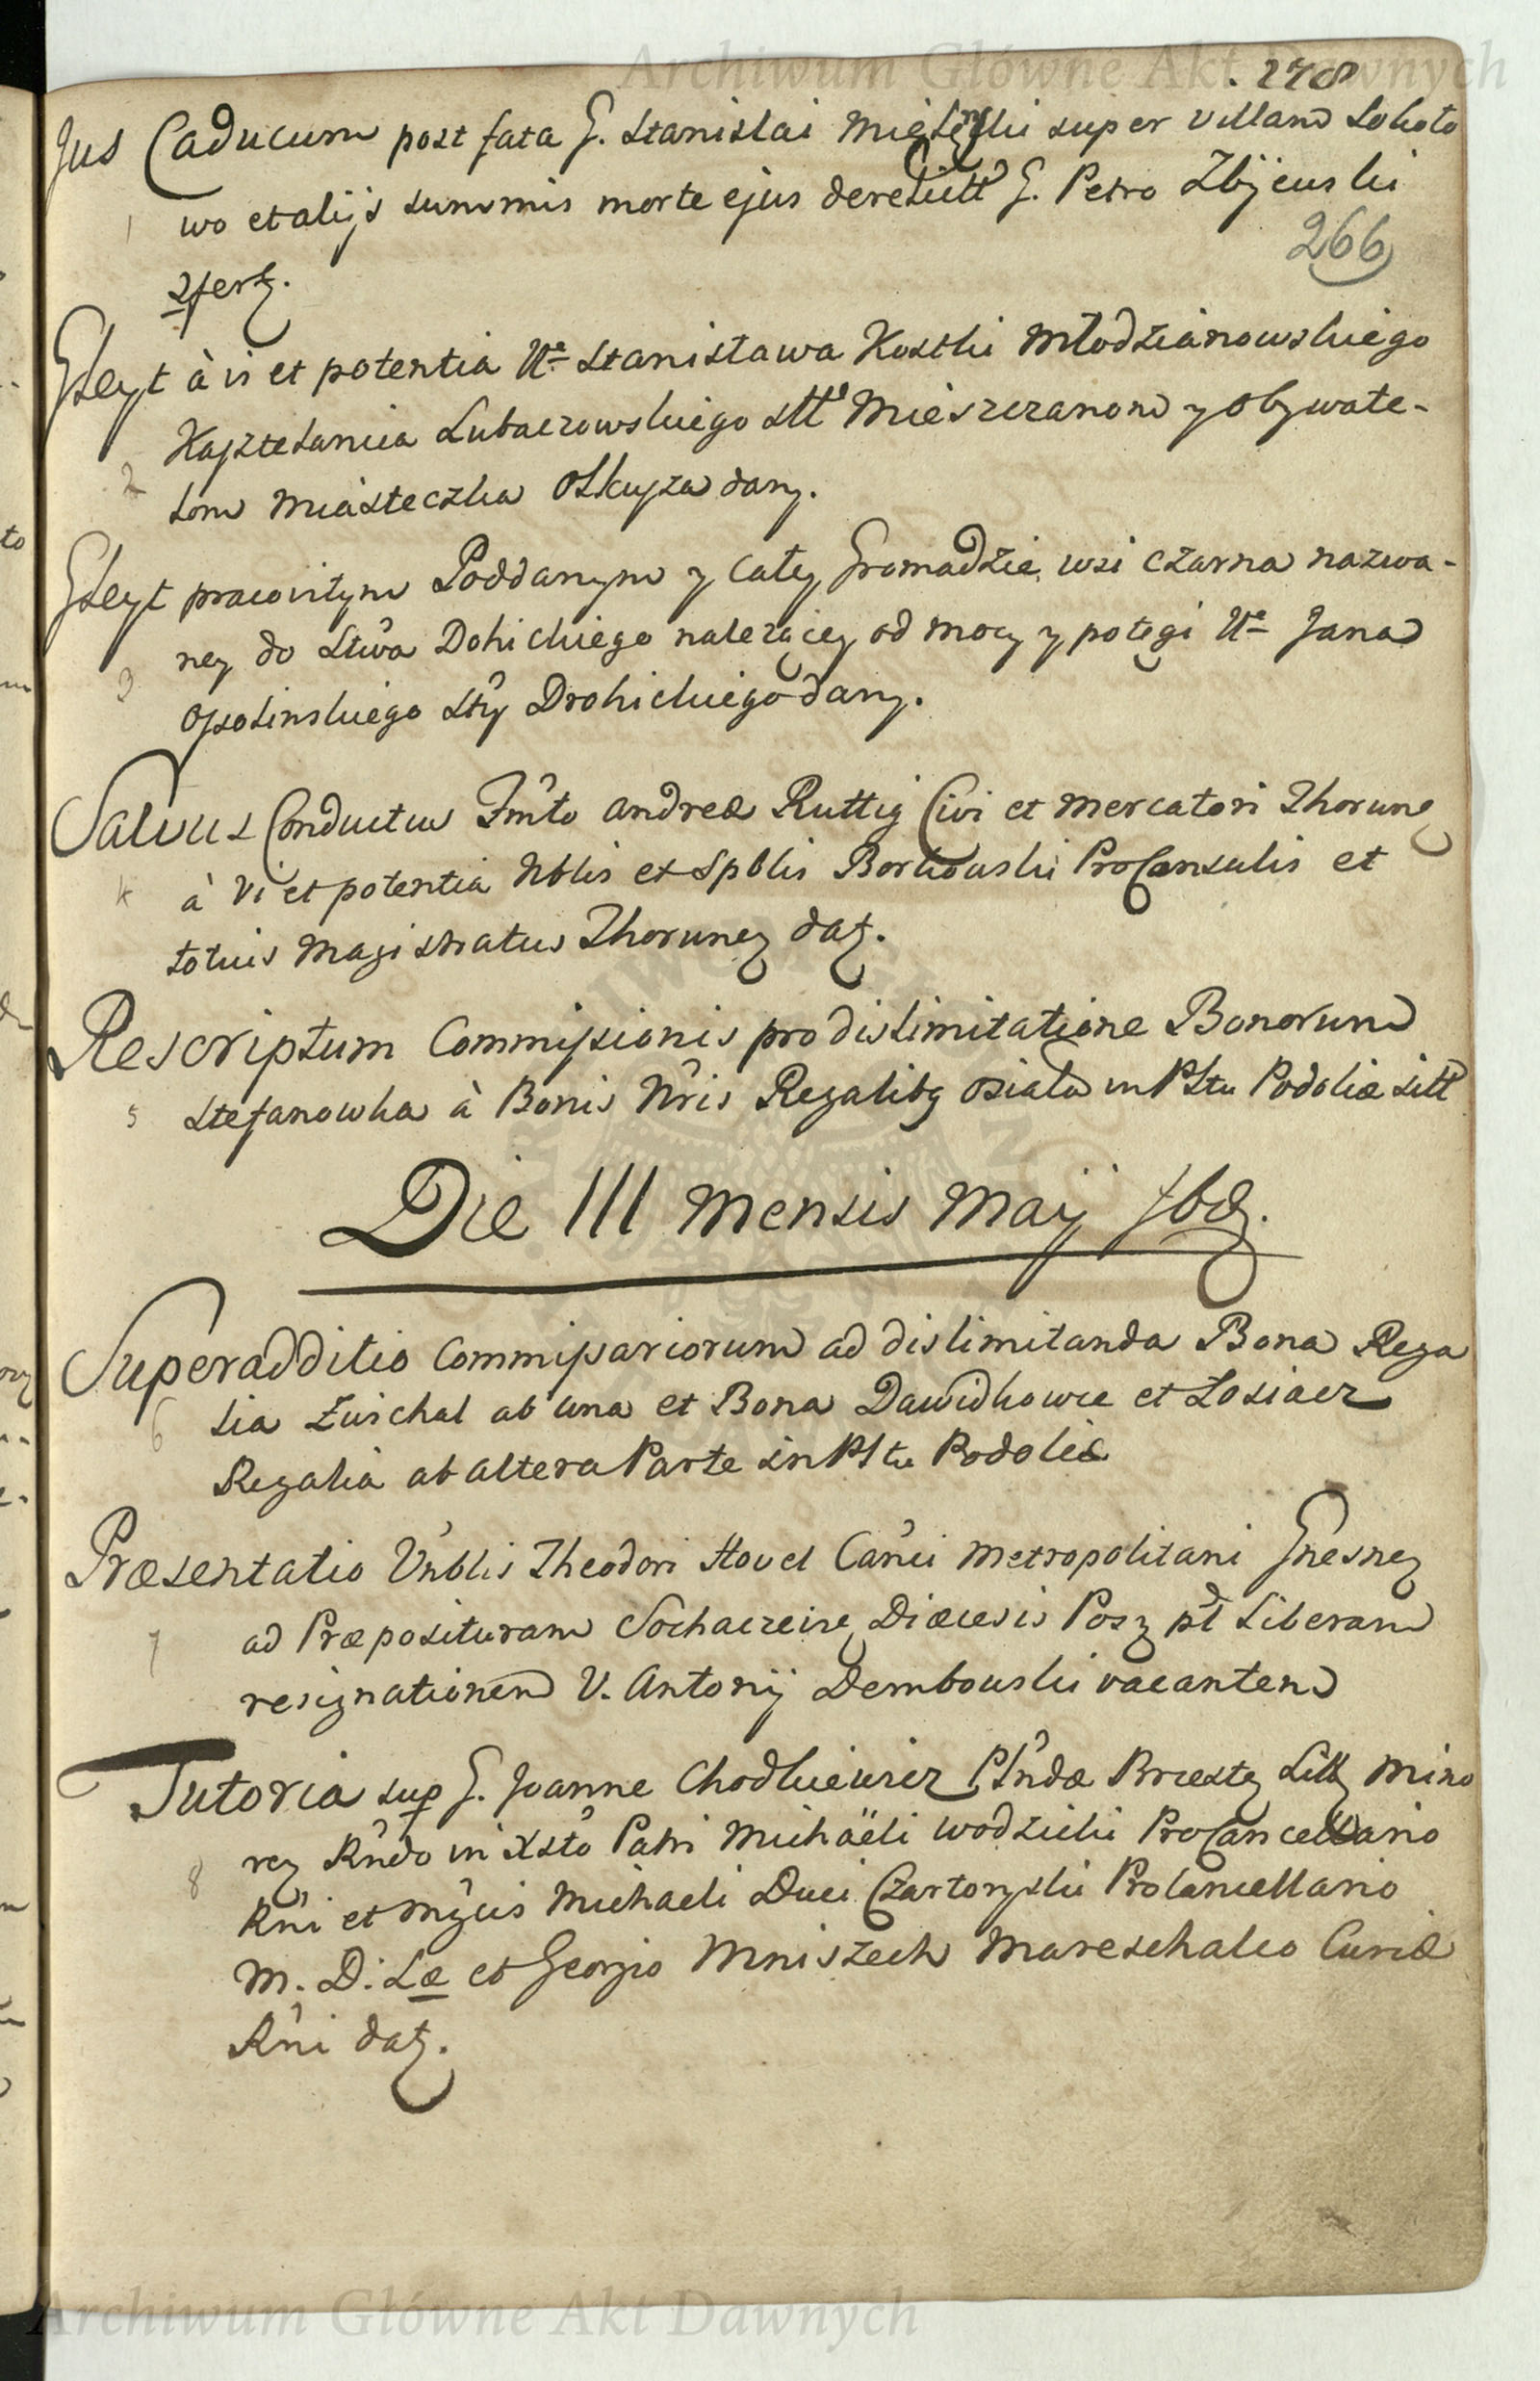 Archiwum Główne Akt Dawnych
278
Jus Caducum post fata G. Stanislai super Villam Sokoto
wo et alijs summis morte ejus derelict G. Petro Zbijewski
266
1
Gleyt à vi et potentia Ur Stanisława Kostki Młodzianowskiego
Kasztelanica Lubaczowskiego Stt Mieszczanom y obywate-
2
lom Miasteczka Olkusza dany.
Gleyt pracovitym Poddanym y całey Gromadzie wsi Czarna nazwa-
ney do Stwa Dohickiego należącey od mocy y potęgi Ur Jana
3
Ossolinskiego Stty Drohickiego dany.
Salvus Conductus Fmto Andreæ Ruttig Civi et Mercatori Thorunę
4 à vi et potentia Nblis et Spblis Borkowski ProConsulis et
totius Magistratus Thorunę datę.
Rescriptum Commissionis pro dislimitatione Bonorum
5 Stefanowka à Bonis Nris Regalibg osiata in Pltu Podoliæ sitt
Die III Mensis Maij
Superadditio Commissariorum ad dislimitanda Bona Rega
6 lia Zuichal ab una et Bona Dawidkowce et Łosiacz
Regalia ab altera Parte in Pltu Podoliæ
Præsentatio Vnblis Theodori Hovel Canci Metropolitani Gnesnę
7 ad Præposituram Sochaczeisę Diæcesis Posę pt Liberam
resignationem V. Antonij Dembowski vacantem
Tutoria sup G. Joanne Chodkiewicz Plndæ Brzestę Littę Mino
8 rę Rndo in Xsto Patri Michaëli Wodzicki ProCancellario
Rni et Mgcis Michaeli Duci Czartoryski Procancellario
M. D. Læ et Georgio Mniszech Mareschalco Curiæ
Rni datę.
Archiwum Główne Akt Dawnych